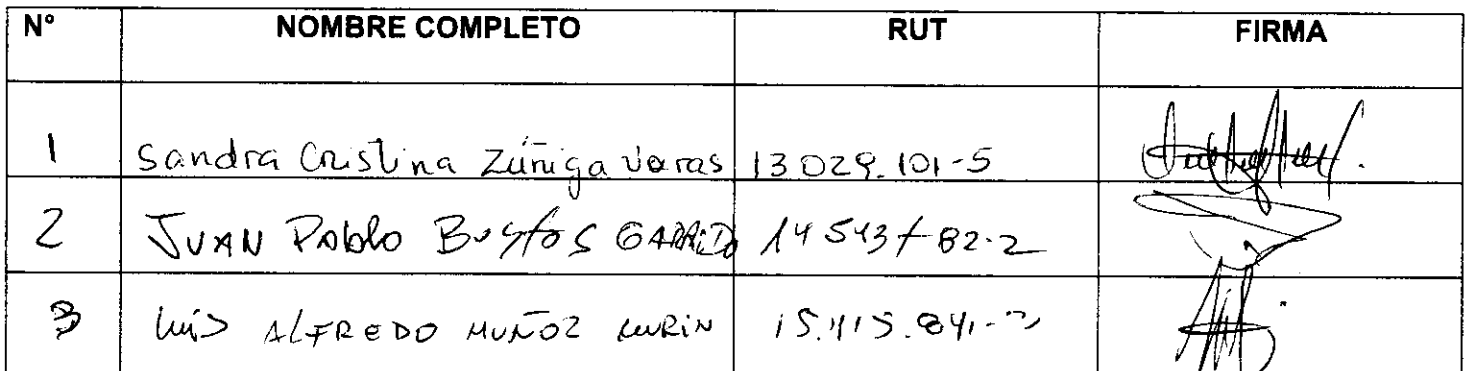 N° NOMBRE COMPLETO RUT FIRMA
1 Sandra Cristina Zúñiga Varas 13.029.101-5
2 JUAN Pablo Bustos GARRIDO 14543782-2
3 Luis ALFREDO MUÑOZ